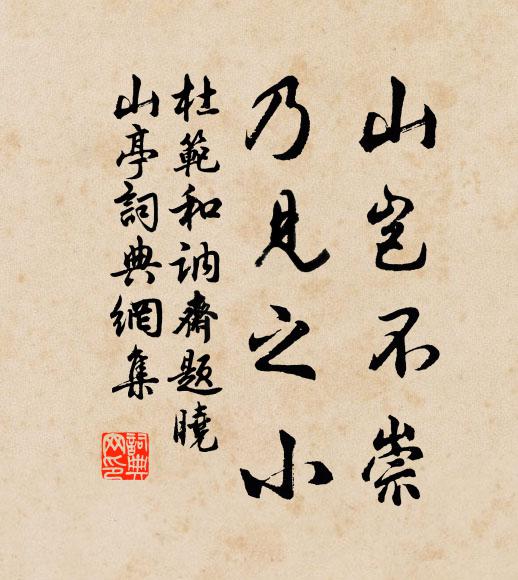 山岂不崇
乃見之小
杜範和訥齋題曉
山亭詞典網集
詞典
网印